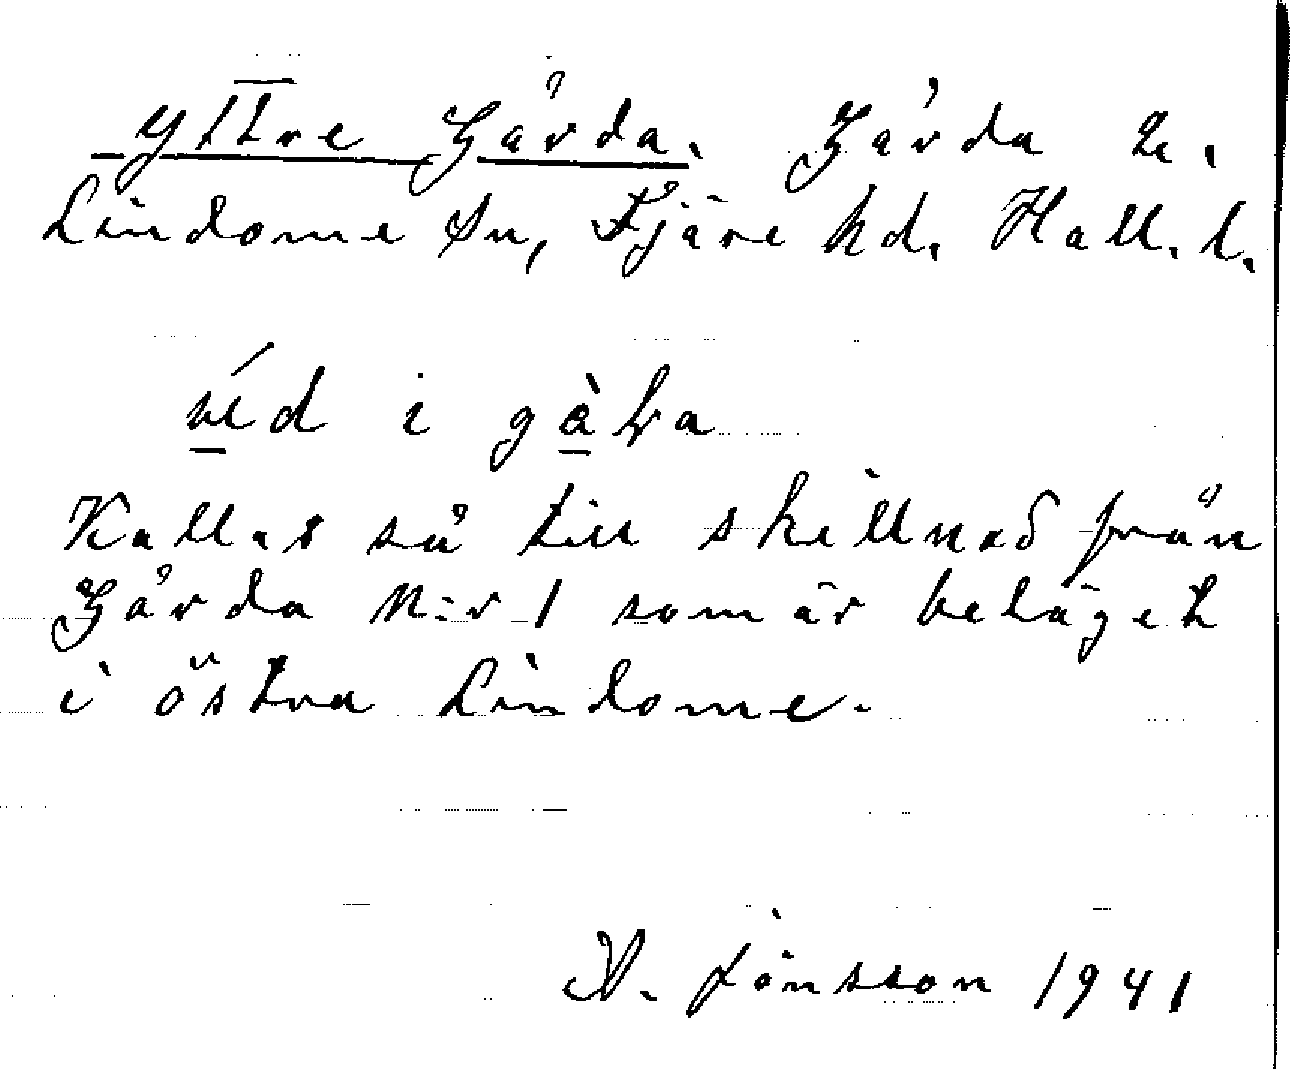 Yttre Gårda. Gårda 2.
Lindome sn, Fjäre hd. Hall. l.
i
Kallas så till skillnad från
Gårda N:r 1 som är beläget
i östra Lindome.
N. Jönsson 1941